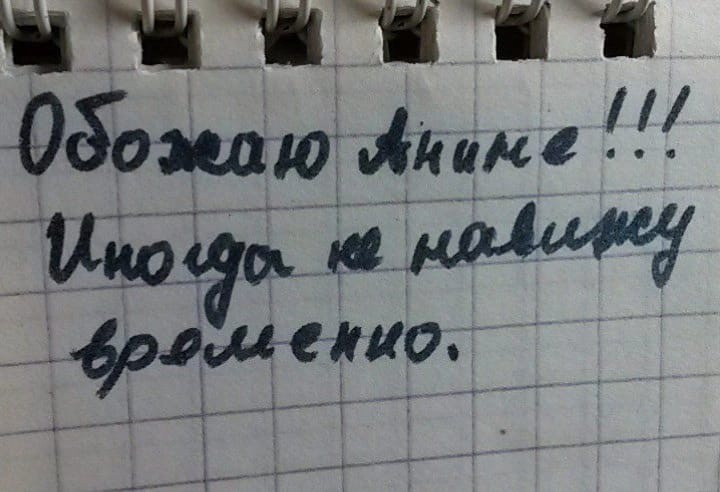 Обожаю Аниме!!!
Иногда не навижу
временно.